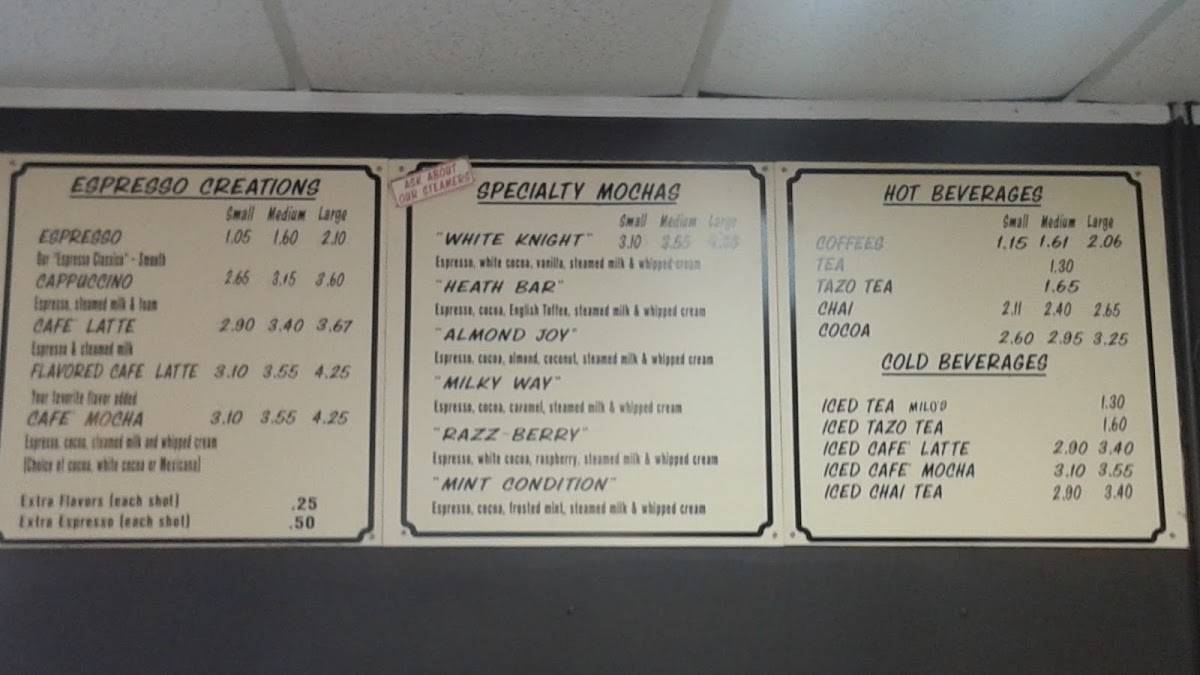 ESPRESSO CREATIONS
Small Medium Large
ESPRESSO 1.05 1.60 2.10
Our "Espresso Classico" - Smooth
CAPPUCCINO 2.65 3.15 3.60
Espresso, steamed milk & foam
CAFE' LATTE 2.90 3.40 3.67
Espresso & steamed milk
FLAVORED CAFE LATTE 3.10 3.55 4.25
Your favorite flavor added
CAFE' MOCHA 3.10 3.55 4.25
Espresso, cocoa, steamed milk and whipped cream
(Choice of cocoa, white cocoa or Mexicana)
Extra Flavors (each shot) .25
Extra Espresso (each shot) .50
ASK ABOUT
OUR STEAMERS
SPECIALTY MOCHAS
Small Medium Large
"WHITE KNIGHT" 3.10 3.55
Espresso, white cocoa, vanilla, steamed milk & whipped cream
"HEATH BAR"
Espresso, cocoa, English Toffee, steamed milk & whipped cream
"ALMOND JOY"
Espresso, cocoa, almond, coconut, steamed milk & whipped cream
"MILKY WAY"
Espresso, cocoa, caramel, steamed milk & whipped cream
"RAZZ-BERRY"
Espresso, white cocoa, raspberry, steamed milk & whipped cream
"MINT CONDITION"
Espresso, cocoa, frosted mint, steamed milk & whipped cream
HOT BEVERAGES
Small Medium Large
COFFEES 1.15 1.61 2.06
TEA 1.30
TAZO TEA 1.65
CHAI 2.11 2.40 2.65
COCOA 2.60 2.95 3.25
COLD BEVERAGES
ICED TEA MILO'S 1.30
ICED TAZO TEA 1.60
ICED CAFE' LATTE 2.90 3.40
ICED CAFE' MOCHA 3.10 3.55
ICED CHAI TEA 2.90 3.40